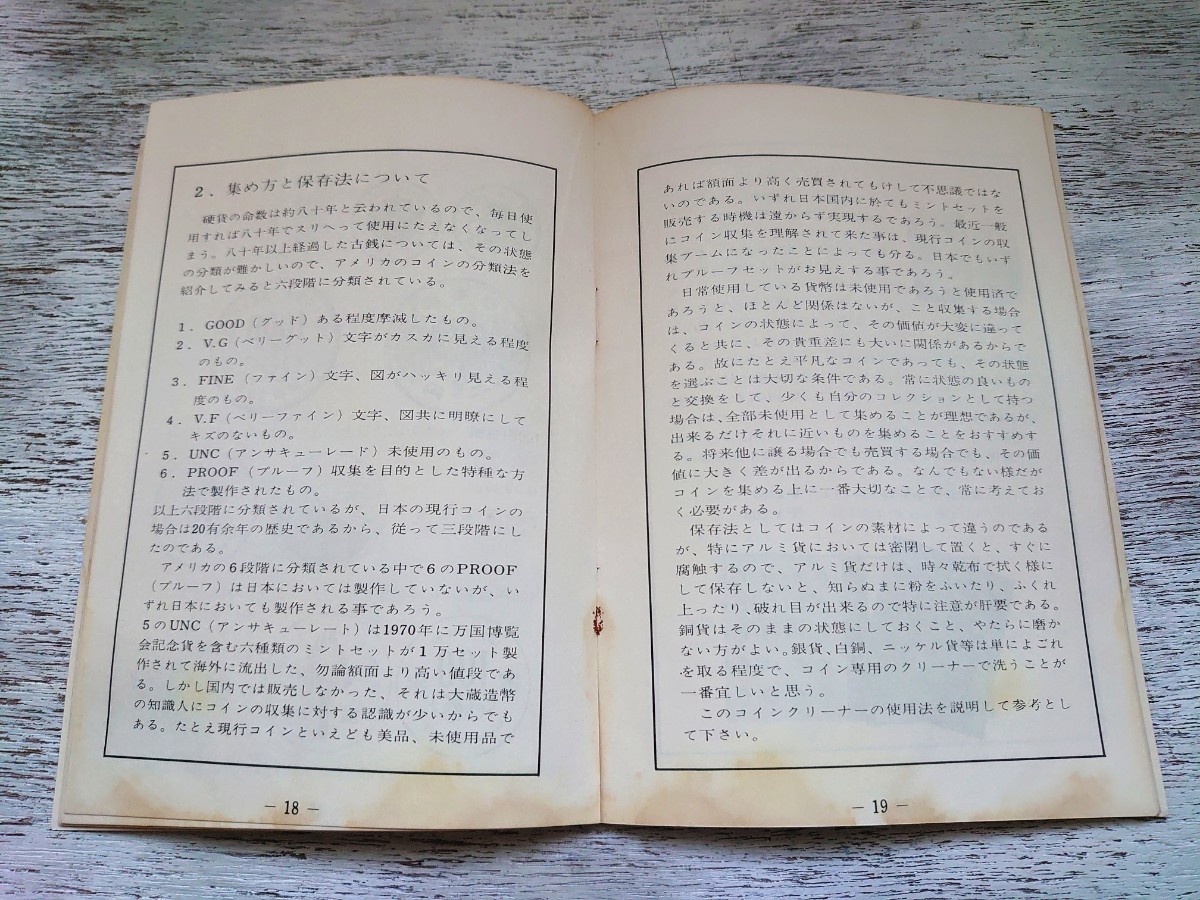 2．集め方と保存法について
硬貨の命数は約八十年と云われているので、毎日使
用すれば八十年でスリヘって使用にたえなくなってし
まう。八十年以上経過した古銭については、その状態
の分類が難かしいので、アメリカのコインの分類法を
紹介してみると六段階に分類されている。
1．GOOD（グッド）ある程度摩滅したもの。
2．V.G（ベリーグット）文字がカスカに見える程度
のもの。
3．FINE（ファイン）文字、図がハッキリ見える程
度のもの。
4．V.F（ベリーファイン）文字、図共に明瞭にして
キズのないもの。
5．UNC（アンサキューレード）未使用のもの。
6．PROOF（プルーフ）収集を目的とした特種な方
法で製作されたもの。
以上六段階に分類されているが、日本の現行コインの
場合は20有余年の歴史であるから、従って三段階にし
たのである。
アメリカの6段階に分類されている中で6のPROOF
（プルーフ）は日本においては製作していないが、い
ずれ日本においても製作される事であろう。
5のUNC（アンサキューレート）は1970年に万国博覧
会記念貨を含む六種類のミントセットが1万セット製
作されて海外に流出した、勿論額面より高い値段であ
る。しかし国内では販売しなかった、それは大蔵造幣
の知識人にコインの収集に対する認識が少いからでも
ある。たとえ現行コインといえども美品、未使用品で
－18－
あれば額面より高く売買されてもけして不思議ではな
いのである。いずれ日本国内に於てもミントセットを
販売する時機は遠からず実現するであろう。最近一般
にコイン収集を理解されて来た事は、現行コインの収
集ブームになったことによっても分る。日本でもいず
れプルーフセットがお見えする事であろう。
日常使用している貨幣は未使用であろうと使用済で
あろうと、ほとんど関係はないが、こと収集する場合
は、コインの状態によって、その価値が大変に違って
くると共に、その貴重差にも大いに関係があるからで
ある。故にたとえ平凡なコインであっても、その状態
を選ぶことは大切な条件である。常に状態の良いもの
と交換をして、少くも自分のコレクションとして持つ
場合は、全部未使用として集めることが理想であるが、
出来るだけそれに近いものを集めることをおすすめす
る。将来他に譲る場合でも売買する場合でも、その価
値に大きく差が出るからである。なんでもない様だが
コインを集める上に一番大切なことで、常に考えてお
く必要がある。
保存法としてはコインの素材によって違うのである
が、特にアルミ貨においては密閉して置くと、すぐに
腐触するので、アルミ貨だけは、時々乾布で拭く様に
して保存しないと、知らぬまに粉をふいたり、ふくれ
上ったり、破れ目が出来るので特に注意が肝要である。
銅貨はそのままの状態にしておくこと、やたらに磨か
ない方がよい。銀貨、白銅、ニッケル貨等は単によごれ
を取る程度で、コイン専用のクリーナーで洗うことが
一番宜しいと思う。
このコインクリーナーの使用法を説明して参考とし
て下さい。
－19－